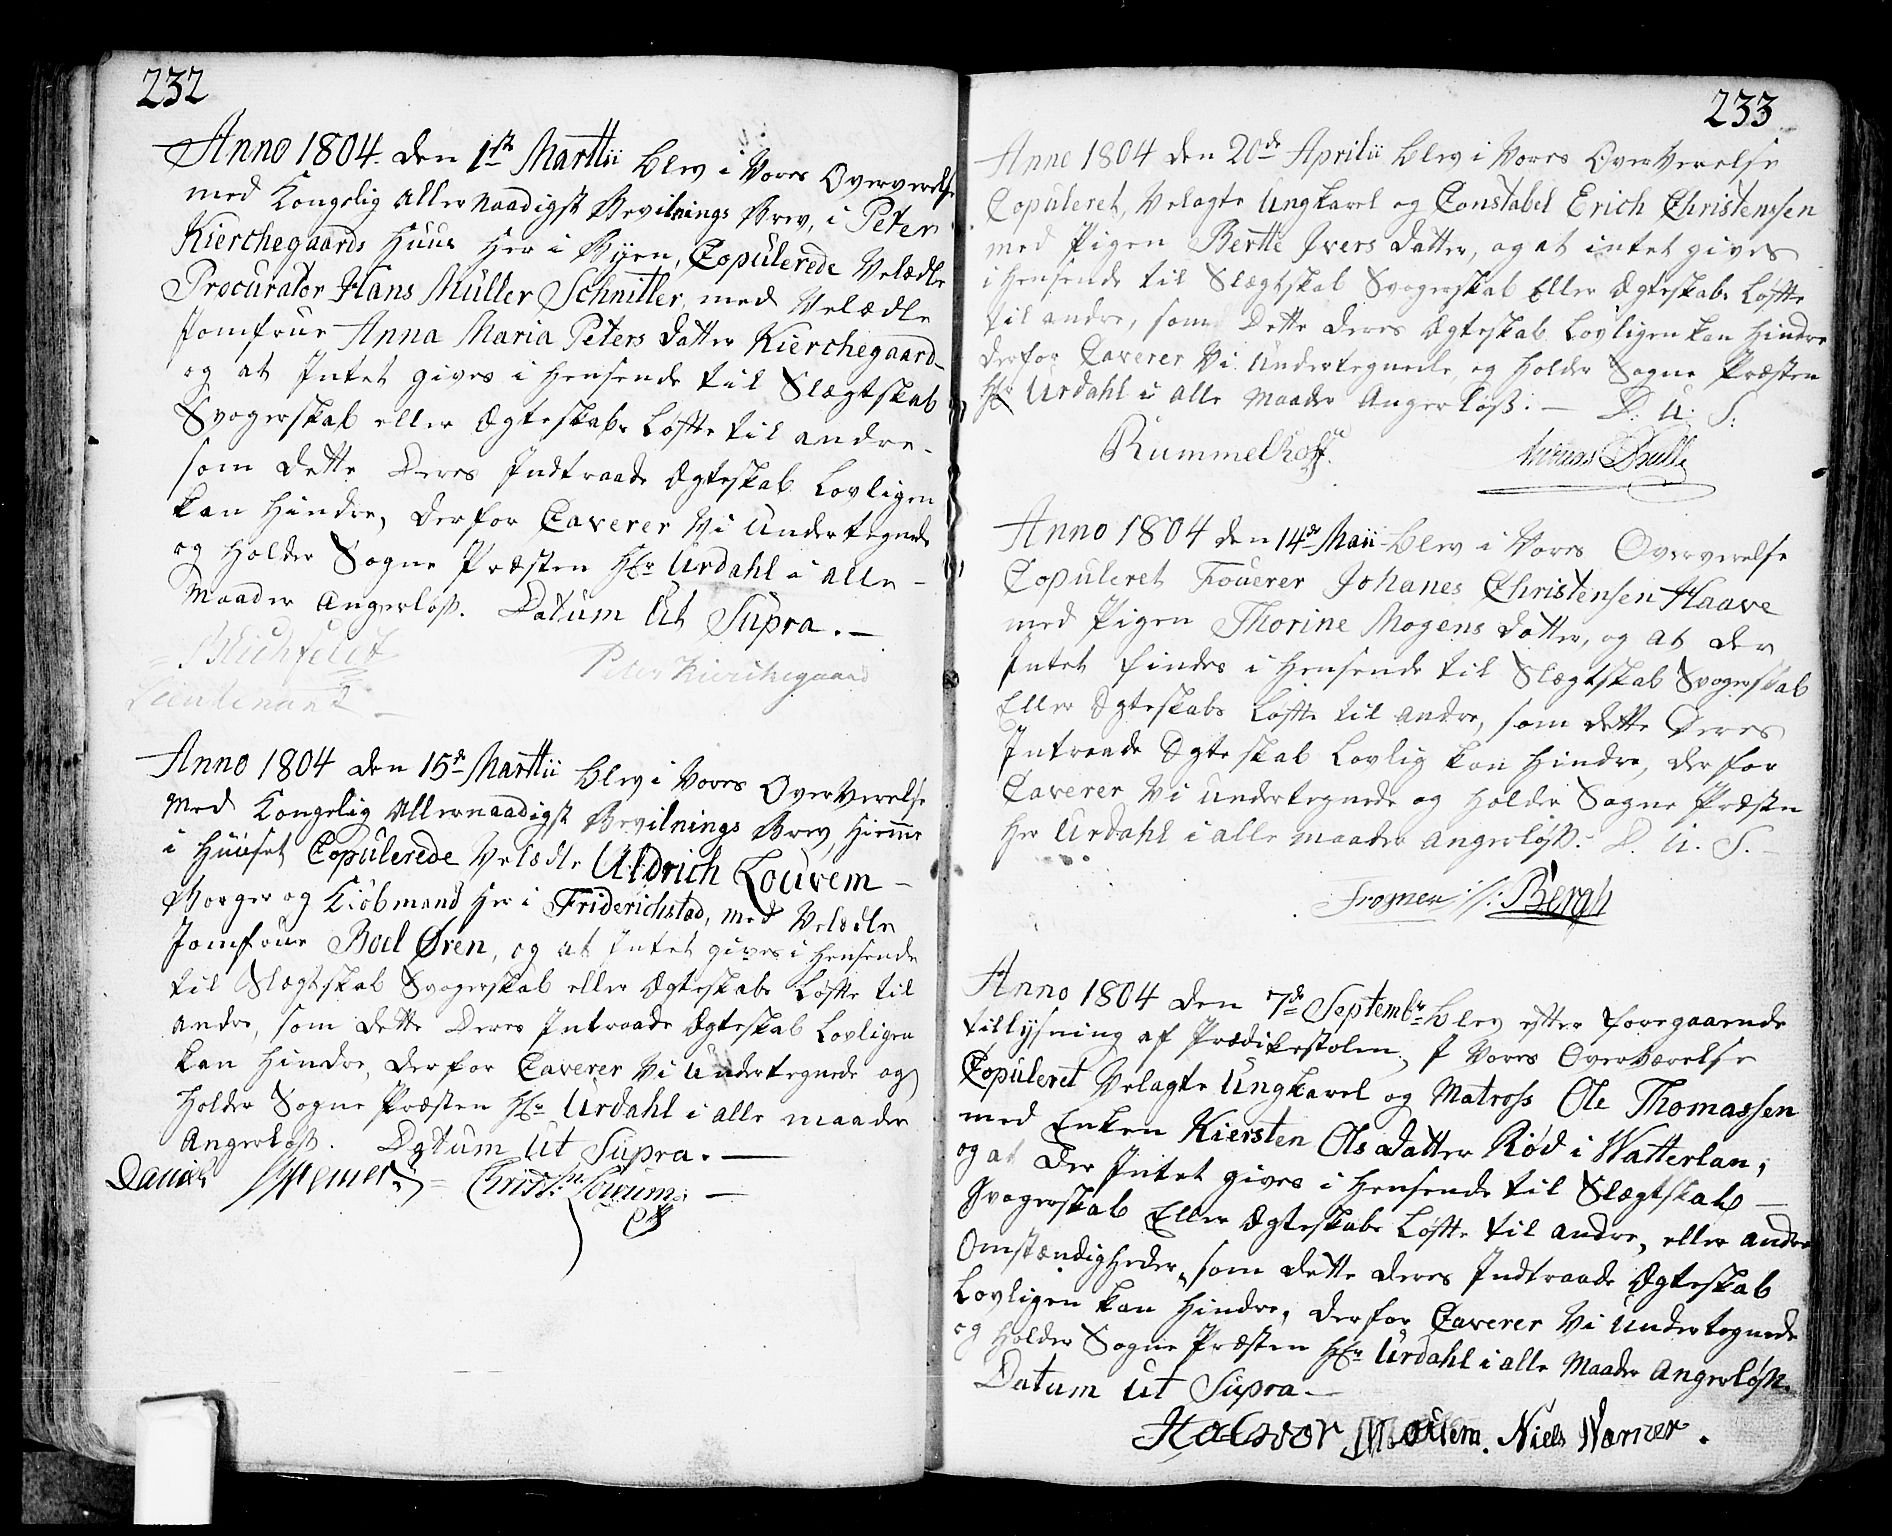 232
Anno 1804. den 1ste Martii blew i Vores Oververelse
med Kongelig allernaadigst Bevilnings Brev, i Peter
Kierchegaards Huus her i Byen, Copulerede Velædle
Procurator Hans Müller Schnitler, med Velædle
Jomfrue Anna Maria Peters datter Kierchegaard
og at Intet gives i Hensende til Slægtskab
Svogerskab eller Ægteskabs Løfte til andre
som dette Deres Indtraade Ægteskab Lovligen
kan Hindre, derfor Caverer Vi undertegnede
og Holder Sogne Præsten Hr. Urdahl i alle
Maader Angerløs. Datum Ut Supra.
Blichfeldt Peter Kierchegaard
Lieutenant
Anno 1804 den 15de Martii blev i Vores OverVerelse
med Kongelig Allernaadigst Bevilnings Brev, hieme
i Huuset Copulerede Velædle Uldrich Lourem
Borger og Kiöbmand her i Friderichstad, med Velædle
Jomfrue Boel Øren, og at Intet gives i Hensende
til Slægtskab Svogerskab eller Ægteskabs Løfte til
andre, som dette Deres Intraade Ægteskab Lovligen
kan Hindre, derfor Caverer Vi undertegnede og
Holder Sogne Præsten Hr. Urdahl i alle maader
Angerløs. Datum Ut Supra.
Daniel Christ:
233
Anno 1804 den 20de Aprilii blew i Vores OverVerelse
Copuleret, Velagte Ungkarel og Constabel Erich Christenssen
med Pigen Berthe Ivers datter, og at intet gives
i Hensende til Slægtskab Svogerskab Eller Ægteskabs Løfte
til andre, som Dette deres Ægteskab Lovligen kan Hindre
derfor Caverer Vi Undertegnede, og Holder Sogne Præsten
Hr. Urdahl i alle Maader Angerløs. D. U. S:
Rummelhoff.
Anno 1804 den 14de Maii blew i Vores Oververelse
Copuleret Fouerer Johanes Christensen Haave
med Pigen Thorine Mogens datter, og at der
Intet findes i Hensende til Slægtskab Svogerskab
Eller Ægteskabs Løfte til andre, som dette Deres
Intraade Ægteskab Lovlig kan Hindre, derfor
Caverer Vi undertegnede og Holder Sogne Præsten
Her Urdahl i alle maader Angerløs. D. U. S.
Bergh
Anno 1804 den 7de Septembr blev efter foregaaende
tillysning af Prædikestolen, I Vores Overværelse
Copuleret Velagte Ungkarel og Matross Ole Thomassen
med Enken Kiersten Ols datter Rød i Watterlan,
og at Der Intet gives i Hensende til Slægtskab
Svogerskab Eller Ægteskabs Løfte til andre, eller andre
Omstændigheder, som dette deres Indtraade Ægteskab
Lovligen kan Hindre, derfor Caverer Vi undertegnede
og Holder Sogne Præsten Hr. Urdahl i alle Maader Angerløs.
Datum Ut Supra.
Halvor Niels